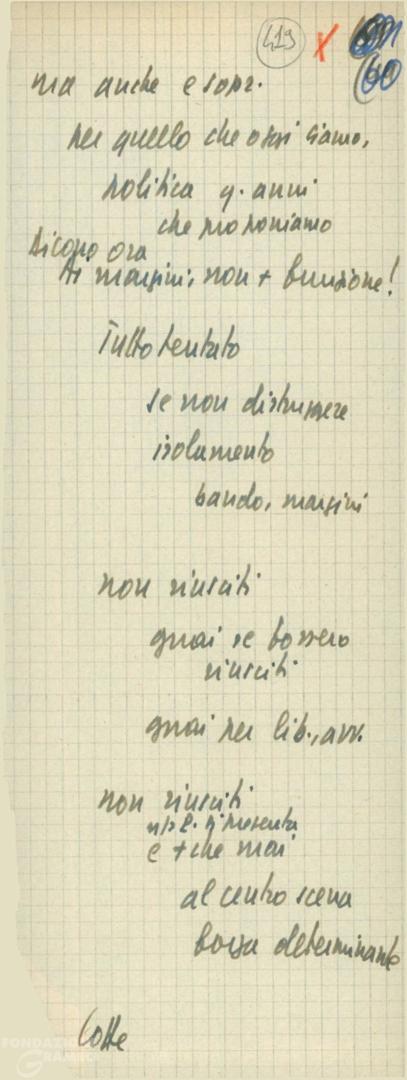 419
60
ma anche e sopr.
per quello che oggi siamo,
politica q. anni
che proponiamo
Dicono ora
Ai margini, non + funzione!
Tutto tentato
se non distruggere
isolamento
bando, margini
non riusciti
guai se fossero
riusciti
guai per lib., avv.
non riusciti
si presenta
e + che mai
al centro scena
forza determinante
Lotte
FONDAZIONE
GRAMSCI